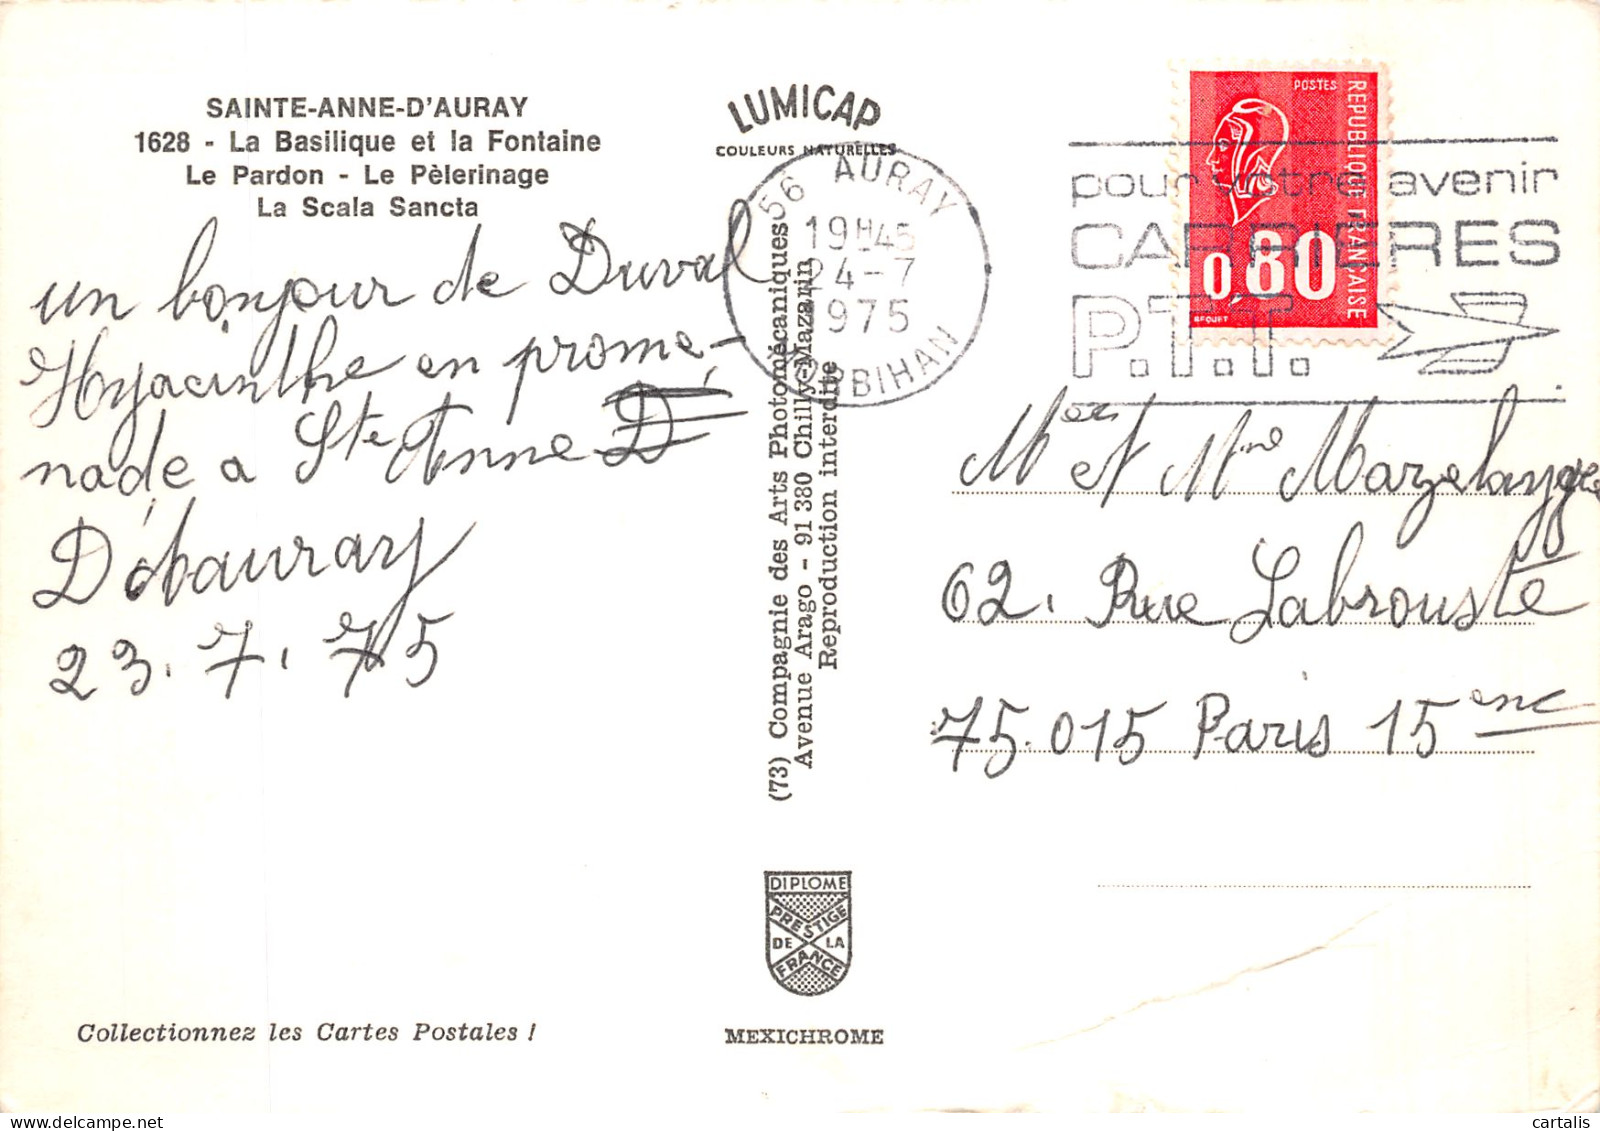 SAINTE-ANNE-D'AURAY
1628 - La Basilique et la Fontaine
Le Pardon - Le Pèlerinage
La Scala Sancta
un bonjour de Duval
Hyacinthe en prome-
nade a Ste Anne D
D'obauray
23.7.75
Collectionnez les Cartes Postales !
LUMICAP
COULEURS NATURELLES
56 AURAY
19H45
24-7
1975
MORBIHAN
(73) Compagnie des Arts Photomécaniques
Avenue Arago - 91 380 Chilly-Mazarin
Reproduction interdite
DIPLOME
PRESTIGE
DE LA
FRANCE
MEXICHROME
POSTES
REPUBLIQUE FRANÇAISE
0,80
BEQUET
pour votre avenir
CARRIERES
P.T.T.
et Mme
62. Rue Labrouste
75.015 Paris 15eme
cartalis